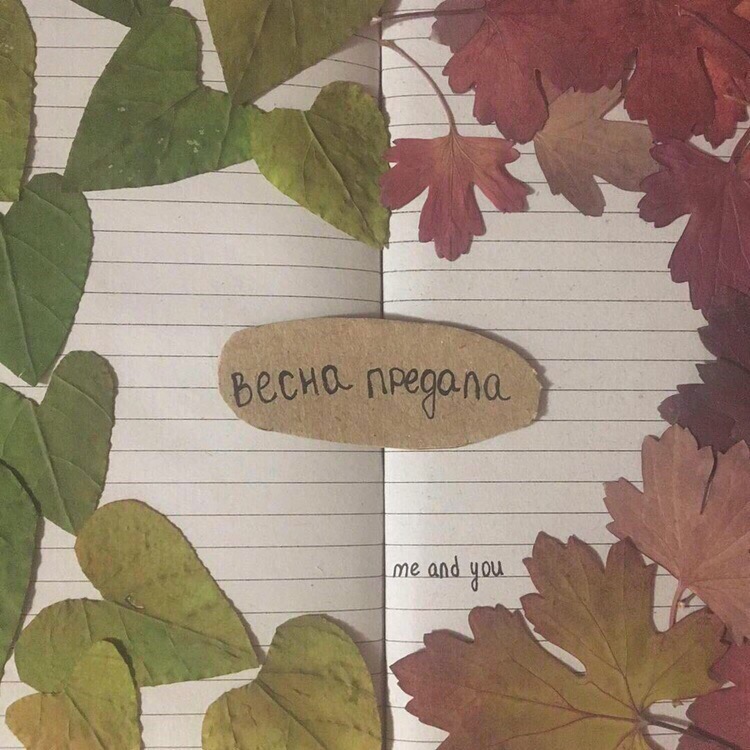 весна предала
me and you